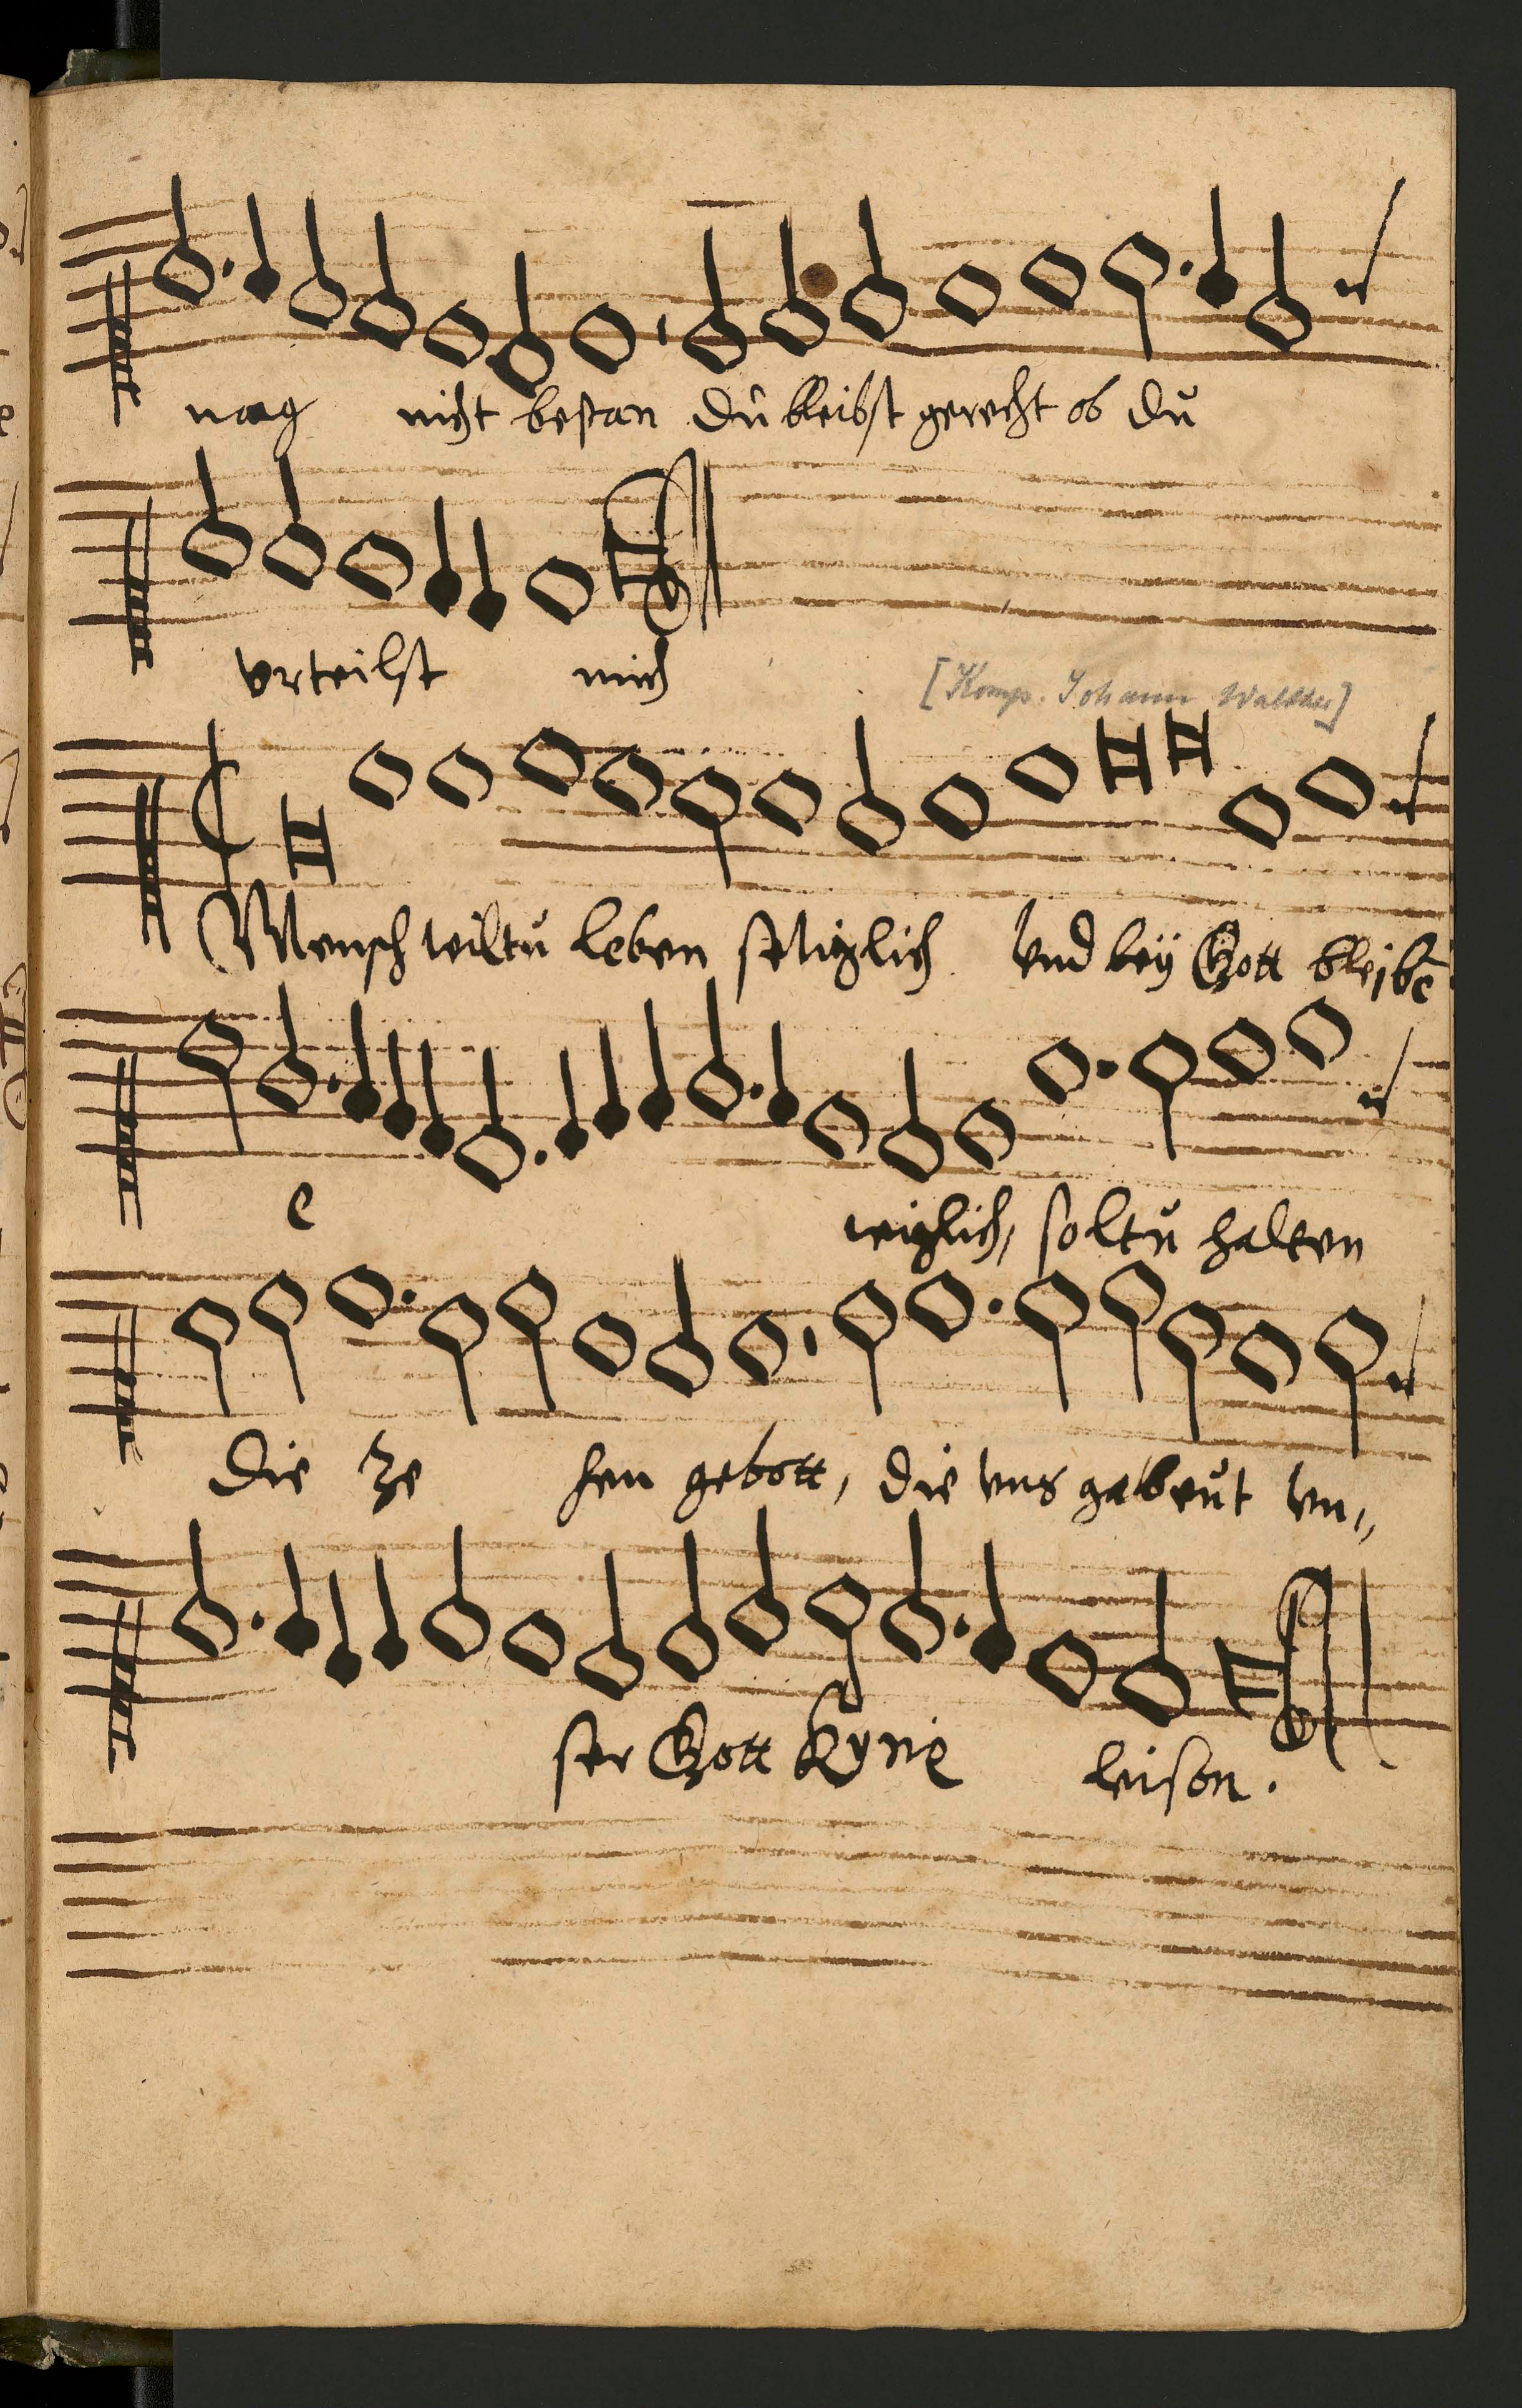 mag nicht bestan du bleibst gerecht ob du
vrteilst mich
[Komp. Johann Walther]
Mensch wiltu leben seliglich Vnd beÿ Gott bleibē
e wiglich, soltu halten
die ze hen gebott, die vns gebeut vn,,
ser Gott Kyrie leison.